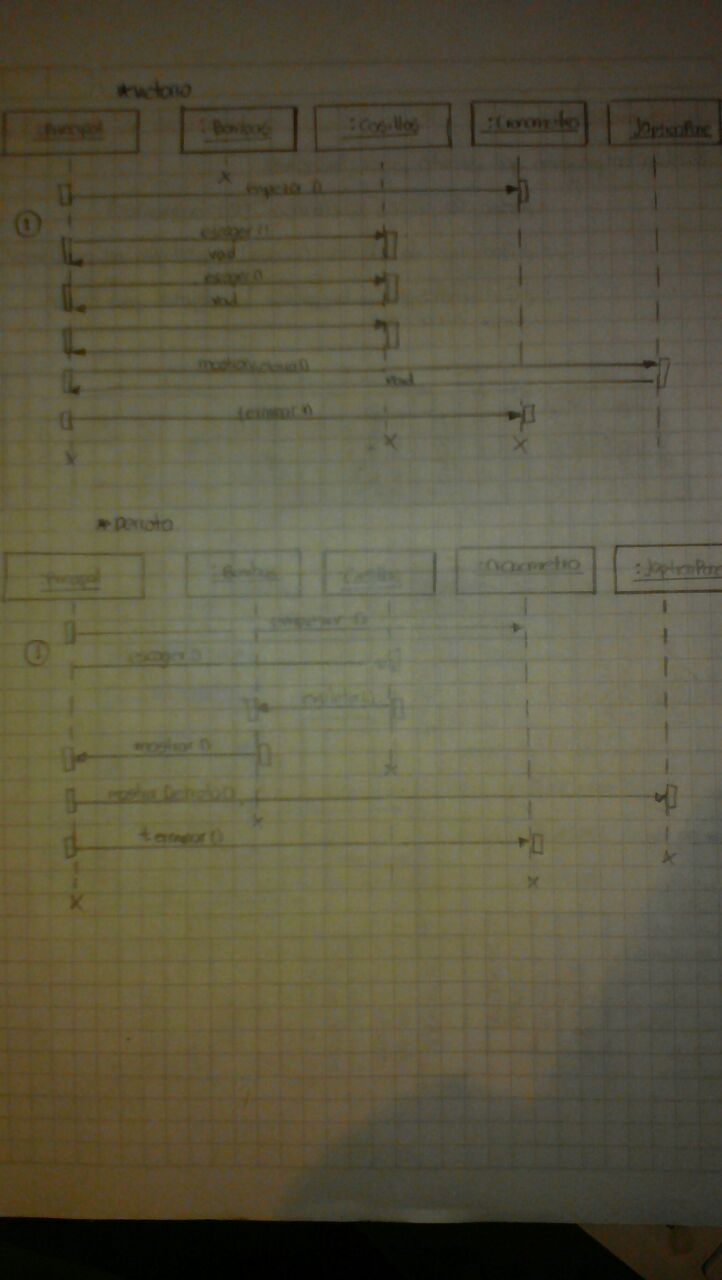 *Victoria
:Principal :Bombas :Casillas :Cronometro JOptionPane
empezar ()
1
escoger ()
void
escoger ()
void
void
terminar ()
*Derrota
:Principal :Bombas Casillas :Cronometro :JOptionPane
empezar ()
1
escoger ()
mostrar ()
mostrar Derrota()
terminar ()